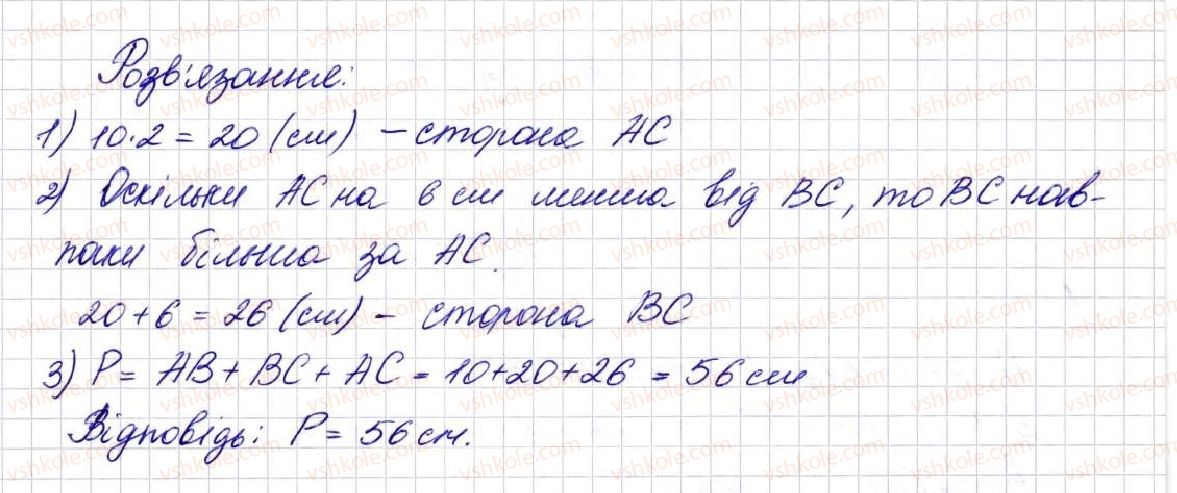 Розв'язання:
1) 10·2 = 20 (см) – сторона AC
2) Оскільки AC на 6 см менша від BC, то BC нав-
паки більша за AC.
20+6 = 26 (см) – сторона BC
3) P = AB + BC + AC = 10+20+26 = 56 см
Відповідь: P = 56 см.